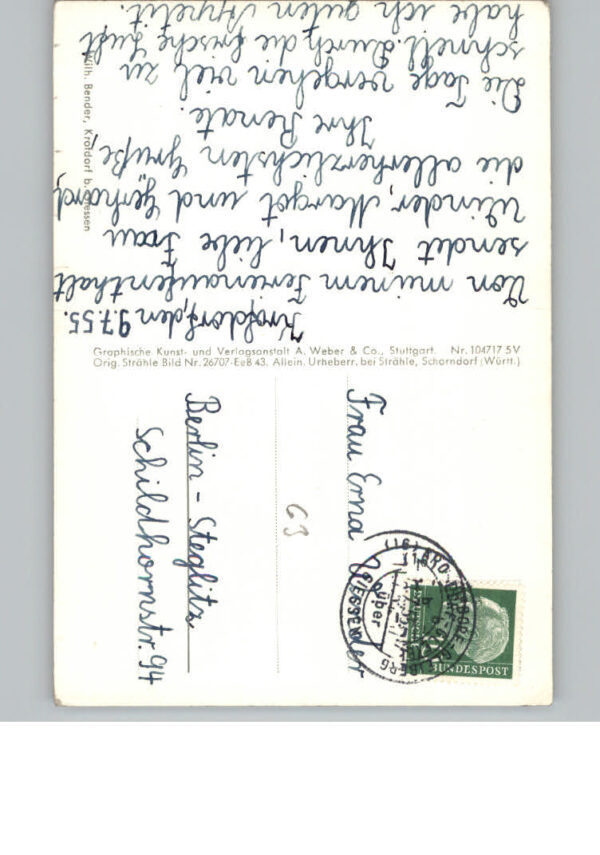 Krofdorf, den 9.7.55.
Von meinem Ferienaufenthalt
sendet Ihnen, liebe Frau
Winder, Margot und Gerhard,
die allerherzlichsten Grüße,
Ihre Renate.
Die Tage vergehen viel zu
schnell. Durch die frische Luft
habe ich guten Appetit.
Wilh. Bender, Krofdorf b. Giessen
Graphische Kunst- und Verlagsanstalt A. Weber & Co., Stuttgart. Nr. 104717 5V
Orig. Strähle Bild Nr. 26707-EeB 43. Allein. Urheberr. bei Strähle, Schorndorf (Württ.)
Frau Erna Winder
Berlin - Steglitz
Schildhornstr. 94
63
BUNDESPOST
(16)
über
GIESSEN